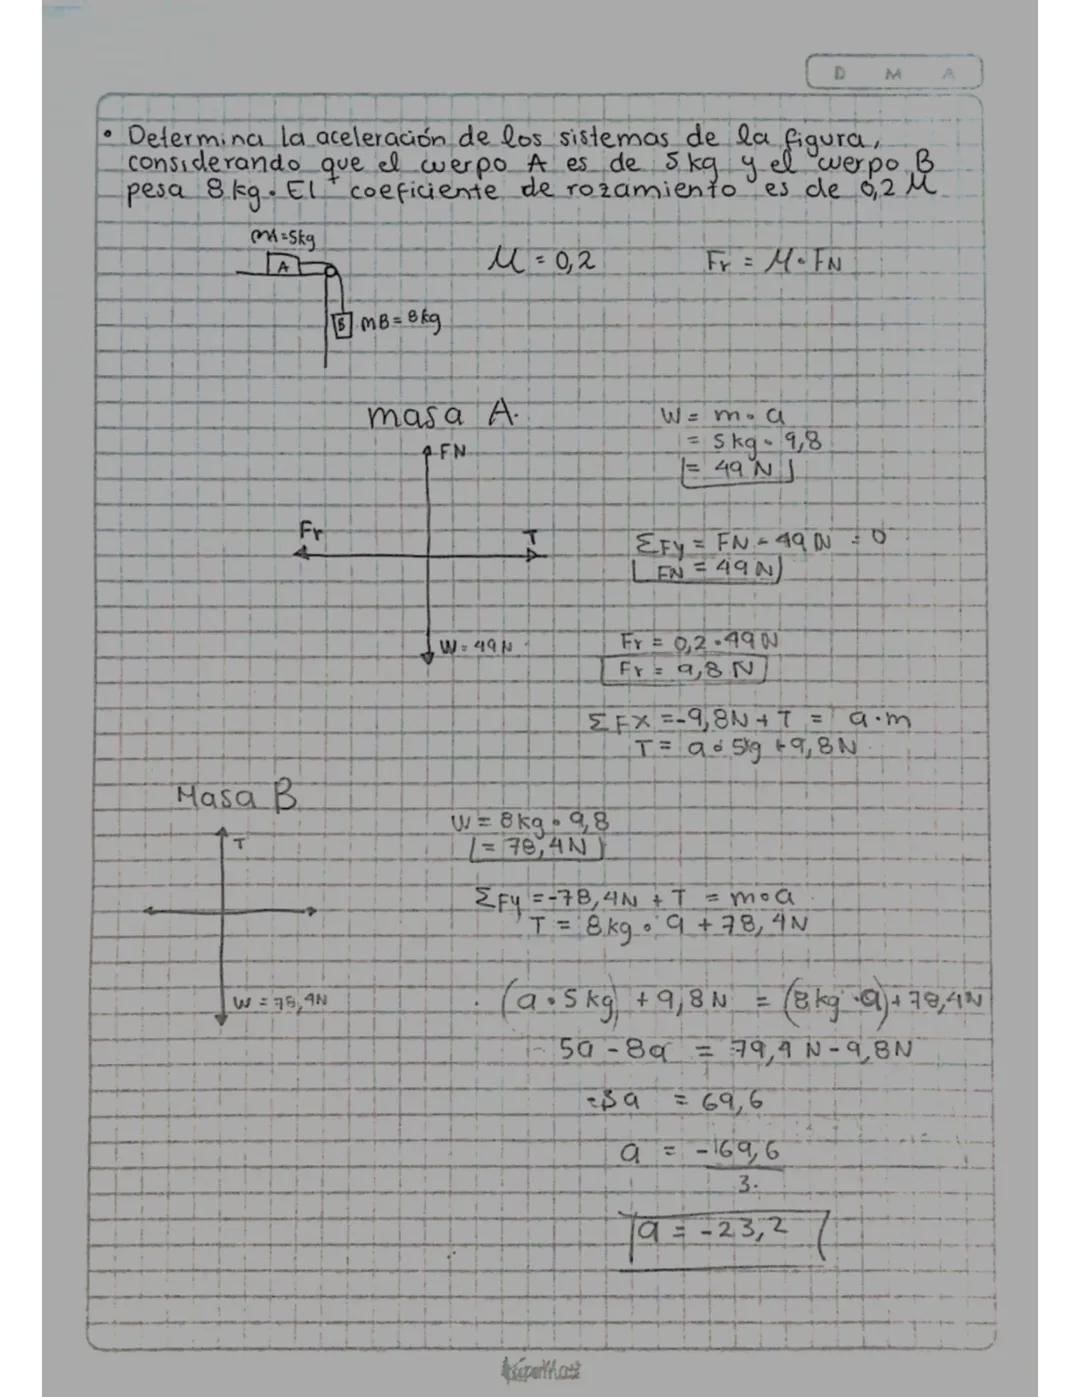 D M A
• Determina la aceleración de los sistemas de la figura,
considerando que el cuerpo A es de 5 kg y el cuerpo B
pesa 8 kg. El coeficiente de rozamiento es de 0,2 M
mA=5kg
A
M = 0,2
Fr = M • FN
B mB = 8kg
masa A.
FN
Fr
T
W = 49N
W = m • a
= 5 kg • 9,8
= 49 N
ΣFy = FN - 49 N = 0
FN = 49 N
Fr = 0,2 • 49 N
Fr = 9,8 N
ΣFX = -9,8N + T = a • m
T = a • 5kg + 9,8N
Masa B
T
W = 78,4N
W = 8kg • 9,8
= 78,4N
ΣFy = -78,4N + T = m • a
T = 8kg • a + 78,4N
(a • 5kg) + 9,8N = (8kg • a) + 78,4N
5a - 8a = 79,4 N - 9,8N
-3a = 69,6
a = -69,6
3.
a = -23,2